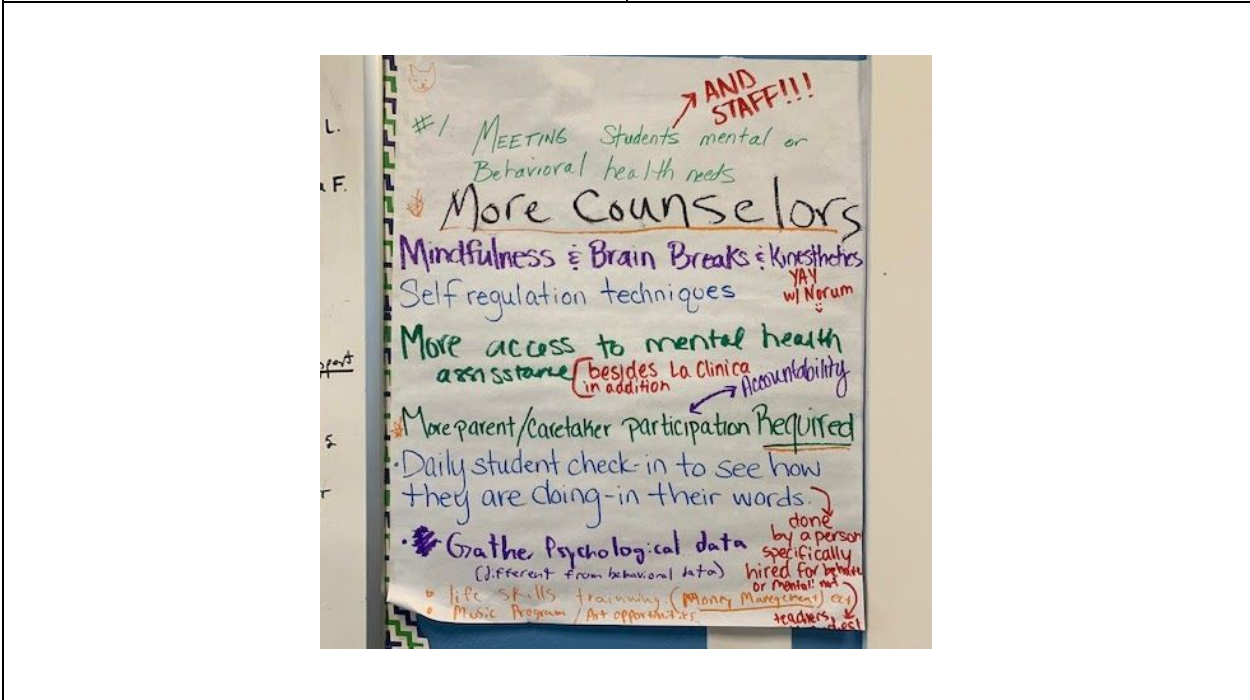 AND
STAFF!!!
#1. MEETING Students mental or
Behavioral health needs
More Counselors
Mindfulness & Brain Breaks & Kinesthetics
YAY
w/ Norum
Self regulation techniques
More access to mental health
assisstance
besides La Clinica
in addition
Accountability
More parent/Caretaker participation Required
• Daily student check-in to see how
they are doing-in their words.
done
by a person
specifically
hired for
or mental: not
teachers,
• Gather Psychological data
(different from behavioral data)
life skills trainning (Money Management) ect
Music Program / Art opportunities
L.
F.